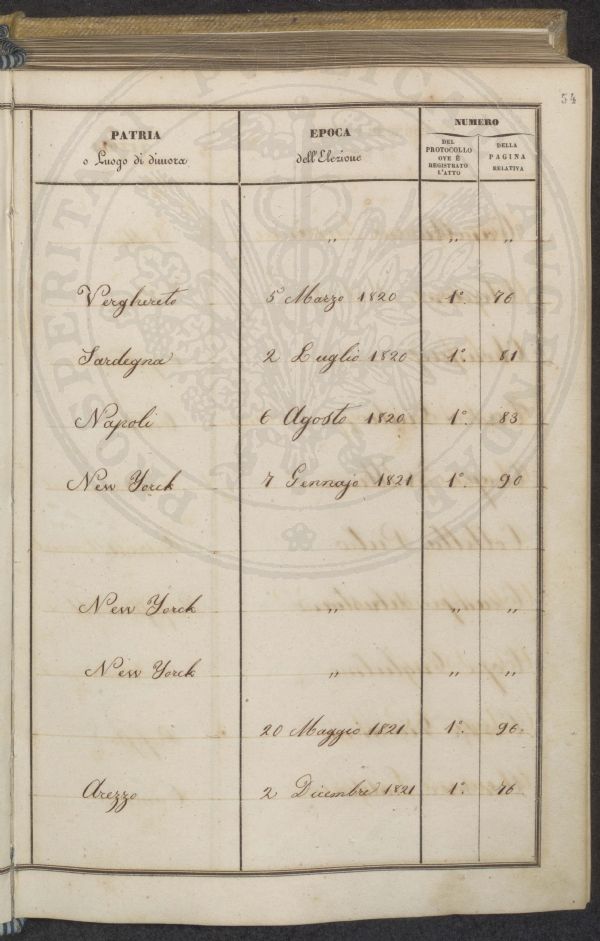 54
PATRIA
o Luogo di dimora
EPOCA
dell'Elezione
NUMERO
DEL
PROTOCOLLO
OVE È
REGISTRATO
L'ATTO
DELLA
PAGINA
RELATIVA
" " "
Verghereto 5 Marzo 1820 1°. 76
Sardegna 2 Luglio 1820 1°. 81
Napoli 6 Agosto 1820 1°. 83
New Yorck 7 Gennajo 1821 1°. 90
New Yorck " " "
New Yorck " " "
20 Maggio 1821 1°. 96.
Arezzo 2 Dicembre 1821 1°. 76